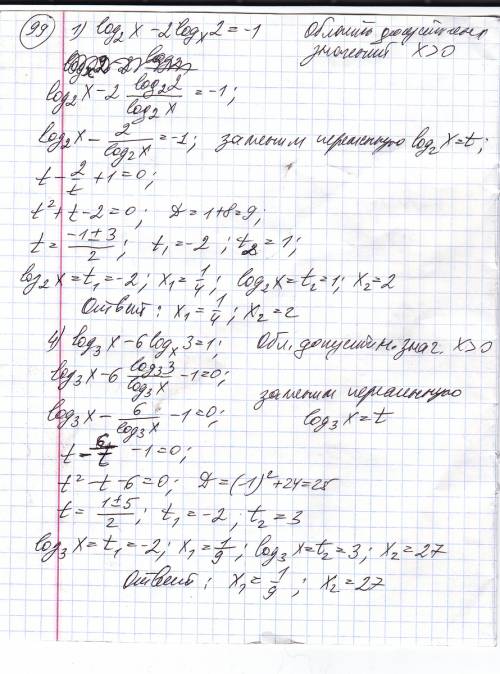 99 1) log₂x - 2logₓ2 = -1 Область допустимых
значений x>0
log₂x - 2 log₂2/log₂x = -1;
log₂x - 2/log₂x = -1; заменим переменную log₂x = t;
t - 2/t + 1 = 0;
t² + t - 2 = 0; D = 1+8 = 9;
t = (-1±3)/2; t₁ = -2; t₂ = 1;
log₂x = t₁ = -2; x₁ = 1/4; log₂x = t₂ = 1; x₂ = 2
Ответ: x₁ = 1/4; x₂ = 2
4) log₃x - 6logₓ3 = 1; Обл. допустим. знач. x>0
log₃x - 6 log₃3/log₃x - 1 = 0;
заменим переменную
log₃x - 6/log₃x - 1 = 0; log₃x = t
t - 6/t - 1 = 0;
t² - t - 6 = 0; D = (-1)² + 24 = 25
t = (1±5)/2; t₁ = -2; t₂ = 3
log₃x = t₁ = -2; x₁ = 1/9; log₃x = t₂ = 3; x₂ = 27
Ответ: x₁ = 1/9; x₂ = 27